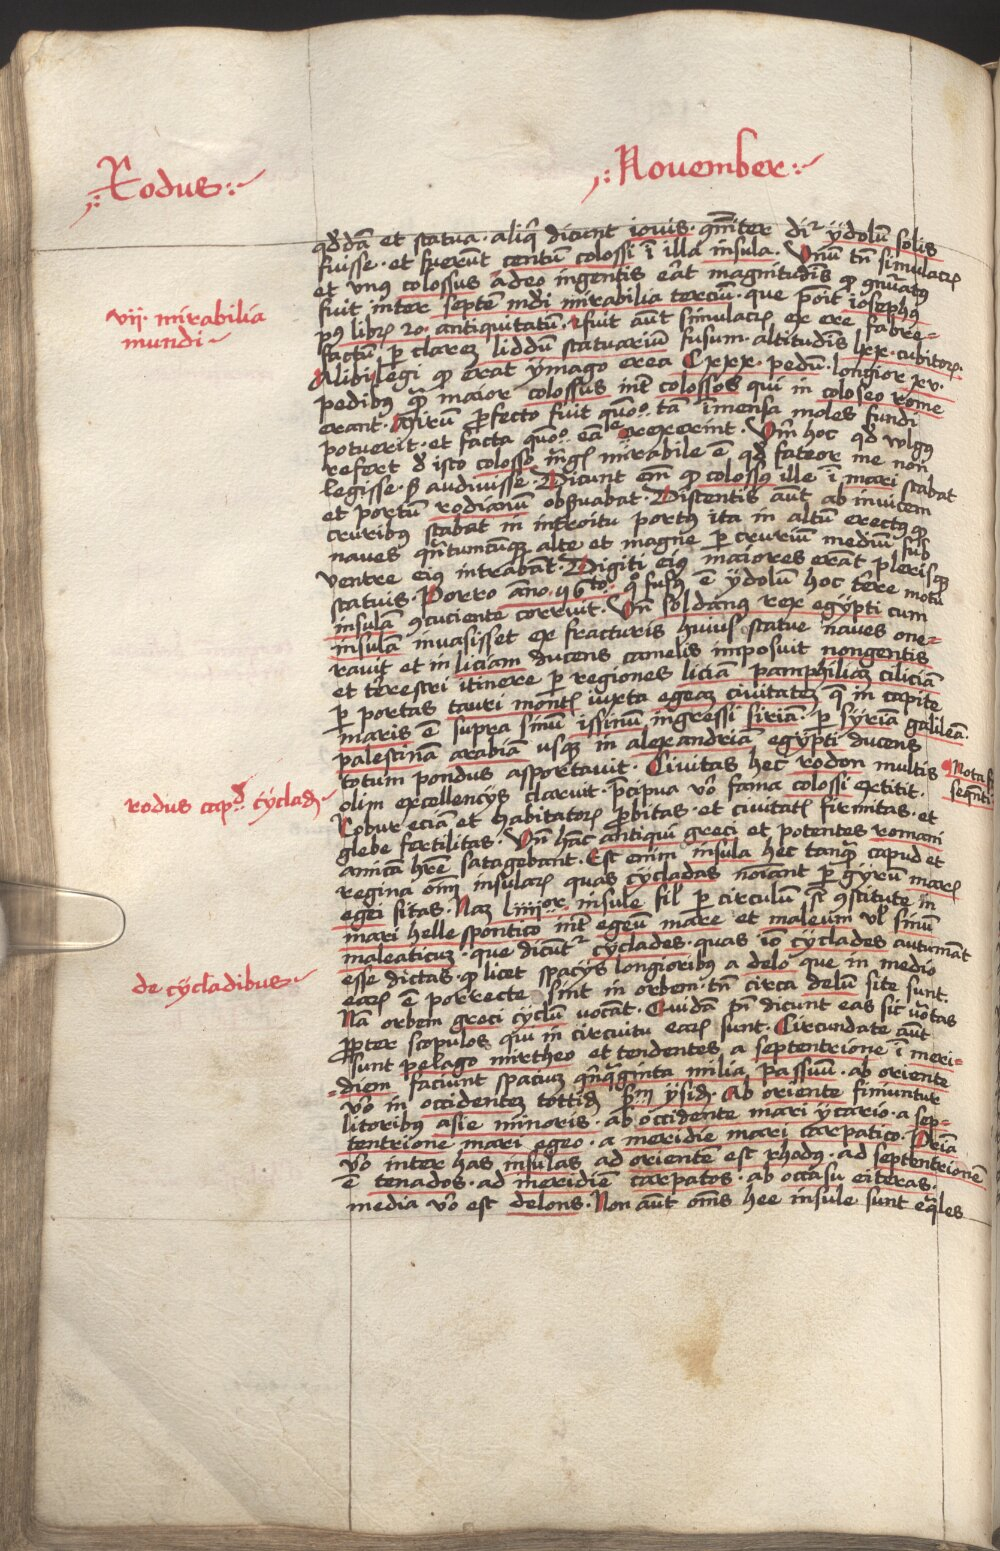 .:Rodus:.
.:November:.
qddā et statua · aliq̄ dicunt iovis · qn̄iter dr̄ ydolū solis
fuisse · et fuerūt centū colossi ī illa insula · Vnū tn̄ simulacrꝫ
et vnꝰ colossus adeo ingentis erāt magnitudis ꝙ
fuit inter septē mdi mirabilia terciū · que pōit iosephꝰ
vii · mirabilia
mundi ·
pꝰ librꝫ 20 · antiquitatū · fuit aūt simulacrꝫ ex ere fabre=
factū · ꝑ clareꝫ liddū statuariū fusum · altitudīs lxx · cubitorꝫ ·
Alibi legi ꝙ erat ymago erea Cxxx · pedū · longior xv ·
pedibꝰ q̄ꝫ maior colossus int̄ colossos qui in coloseo rome
erant · Mirū ꝓfecto fuit quōꝰ · tā īmensa moles fundi
potuerit · et facta quōꝰ · eā le erexerint · Vm̄ hoc qd wlgꝰ
refert d isto colosso mirabile ē qd fateor me non
legisse · sꝫ audivisse · Dicunt em̄ ꝙ colossꝰ ille ī mari stabat
et portū rodianū obẜuabat · Distentis aūt ab invicem
cruribꝰ stabat in introitu portꝰ ita in altū erectꝰ ꝙ
naves qn̄tuncūqꝫ alte et magne ꝑ cruriū mediū sub
ventre eiꝰ intrabāt · Digiti eiꝰ maiores erāt plerisqꝫ
statuis · Porro anno · 96to · ꝙ fusꝰ ē ydolū hoc t̄re motu
insulā ꝯcuciente corruit · Vn̄ soldanꝰ rex egypti cum
insulā invasisset ex fracturis huiusˀ statue naves one=
ravit et in liciam ducens camelis imposuit nongentis
et t̄restri itinere ꝑ regiones liciā pamphiliaꝫ ciliciā
ꝑ portas tauri montꝫ iuxta egeaꝫ civitateꝫ q̄ in capite
maris ē supra sinū issinū ingressi siriā · ꝑ syriā galileā ·
palestinā arabiā usqꝫ in alexandriā egypti ducens
totum pondus asportavit · Civitas hec rodon multis
Nota
seqn̄ti
olim excellencijs claruit · p̄cipua vo fama colossi extitit ·
rodus capᵈ cycladꝫ ·
Robur eciā et habitatorꝫ ꝓbitas · et civitatꝫ firmitas · et
glebe fertilitas · Vn̄ hāc antiqui greci et potentes romani
amicā hr̄e satagebant · Est enim insula hec tanqꝫ capud et
regina om̄i insularꝫ quas cycladas noīant ꝑ gyrū marꝫ
egei sitas · Naꝫ Liiiior insule sil ꝑ circulū st̄ ꝯstitute in
mari hellespontico int̄ egeū mare et maleum vl sinū
maleaticuꝫ · que dicūtˀ cyclades · quas iō cyclades autumāt
de cycladibus ·
esse dictas · ꝙ licet spacijs longioribꝰ a delo que in medio
earꝫ ē porrecte sint in orbem · tn̄ circa delū site sunt ·
Nā orbem greci cyclū vocāt · Quidā tn̄ dicunt eas sic vōtas
ꝓpter scopulos qui in circuitu earꝫ sunt · Circundate aūt
sunt pelago mirtheo et tendentes a septentrione ī meri=
=diem faciunt spatiuꝫ qn̄q̄ginta milia passuū · ab oriente
vo in occidenteꝫ tottidꝫ ẜm ysidꝫ · Ab oriente finiuntur
litoribꝰ asie minoris · ab occidente mari ycario · a sep=
tentrione mari egeo · a meridie mari carpatico · Priā
vo inter has insulas ad oriente est rhodꝰ · ad septentrionē
ē tenados · ad meridiē carpatos · ab occasu citeras ·
media vo est delons · Non aūt om̄s hee insule sunt eq̄les